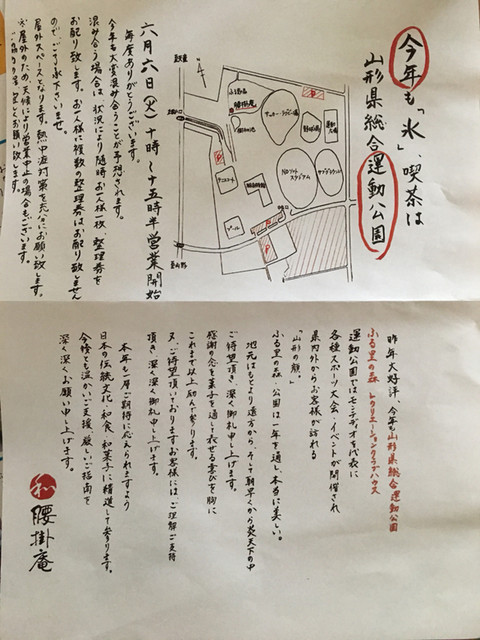 今年も「氷」、喫茶は
山形県総合運動公園
六月六日(火)十時～十五時半営業開始
毎度ありがとうございます。
今年も大変混み合うことが予想されます。
混み合う場合は、状況により随時お一人様一枚、整理券を
お配り致します。お一人様に複数の整理券はお配り致しません
ので、ご了承下さいませ。
屋外スペースとなります。熱中症対策を充分にお願い致します。
※屋外のため天候により営業中止の場合もございます。
P
サッカー・ラグビー場
野球場
運動広場
NDソフト
スタジアム
テニスコート
プール
P
P
昨年大好評、今年も山形県総合運動公園
ふる里の森 レクリエーションクラブハウス
運動公園ではモンテディオを代表に
各種スポーツ大会、イベントが開催され
県内外からお客様が訪れる
「山形の顔」。
ふる里の森・公園は一年を通し、本当に美しい。
地元はもとより遠方から、そして朝早くから炎天下の中
ご待望頂き、深く御礼申し上げます。
感謝の念を菓子を通して表せる喜びを胸に
これまで以上励んで参ります。
又、ご待望頂いておりますお客様には、ご理解ご支持
頂き、深く深く御礼申し上げます。
本年も一層ご期待に応えられますよう
日本の伝統文化、和食、和菓子に精進して参ります。
今後とも温かいご支援、厳しいご指南を
深く深くお願い申し上げます。
和
腰掛庵